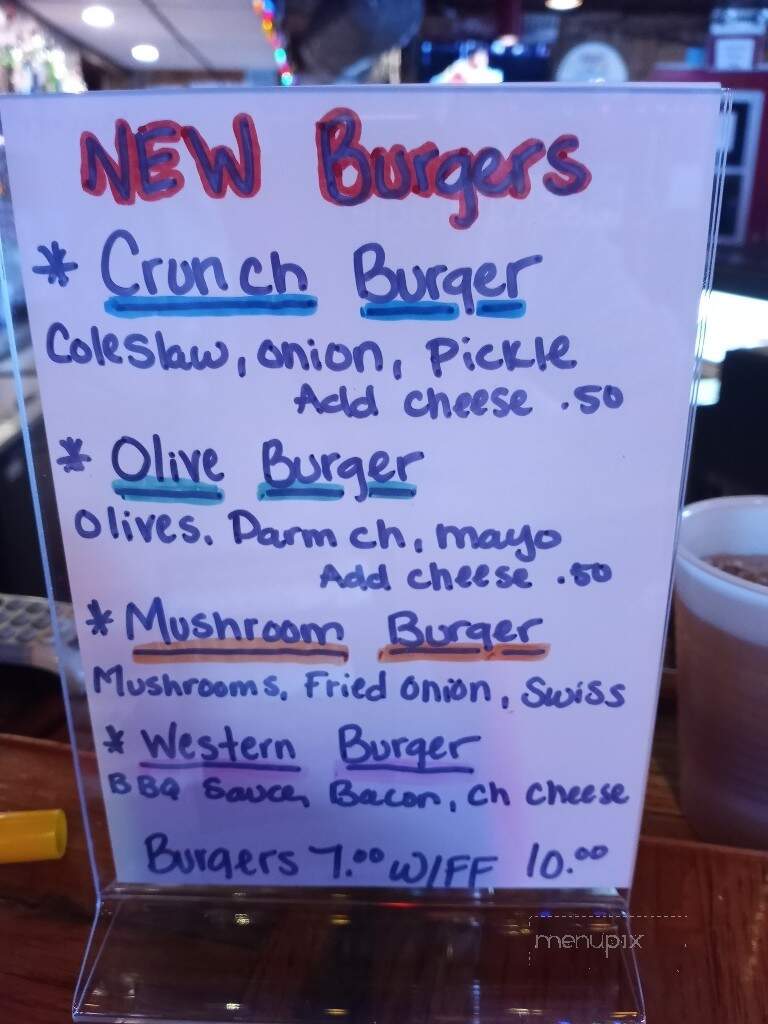 NEW Burgers
* Crunch Burger
Coleslaw, onion, Pickle
Add cheese .50
* Olive Burger
Olives, Parm ch, mayo
Add cheese .50
* Mushroom Burger
Mushrooms, Fried onion, Swiss
* Western Burger
BBQ Sauce, Bacon, ch cheese
Burgers 7.00 W/FF 10.00
menupix